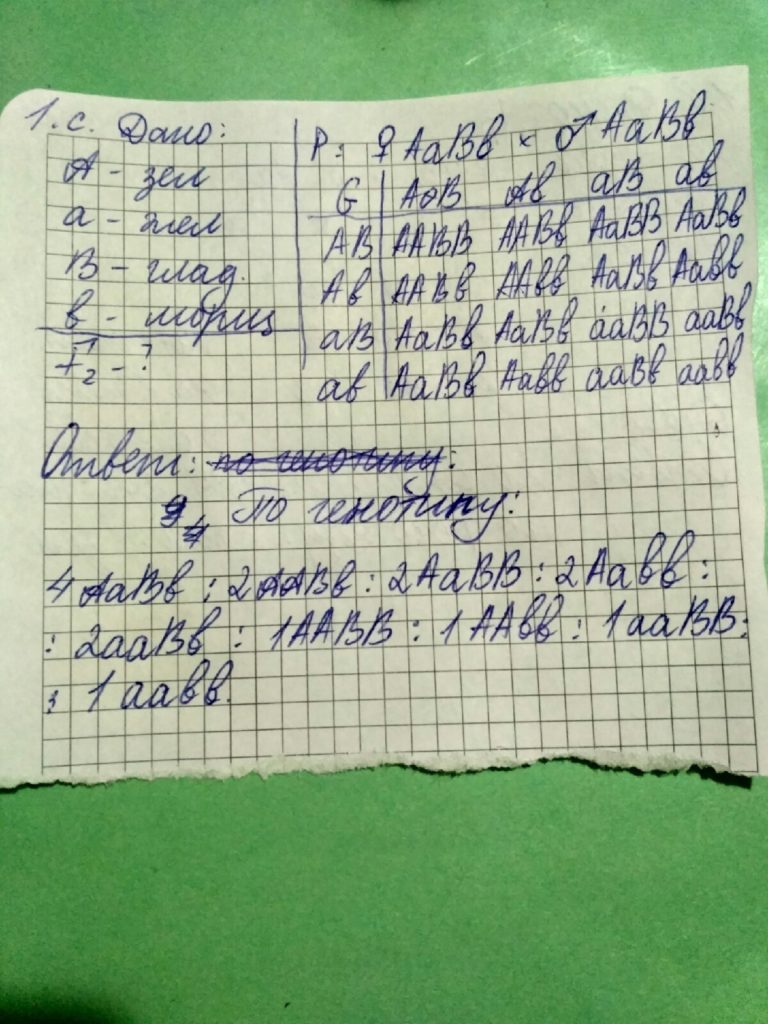 1. с. Дано:
А - зел
а - жел
В - глад.
в - морщ
F₂ - ?
Р: ♀ АаВв × ♂ АаВв
G АВ Ав аВ ав
АВ ААВВ ААВв АаВВ АаВв
Ав ААВв ААвв АаВв Аавв
аВ АаВв АаВв ааВВ ааВв
ав АаВв Аавв ааВв аавв
Ответ: по генотипу:
По генотипу:
4 АаВв : 2ААВв : 2АаВВ : 2Аавв :
: 2ааВв : 1ААВВ : 1ААвв : 1ааВВ :
: 1 аавв.